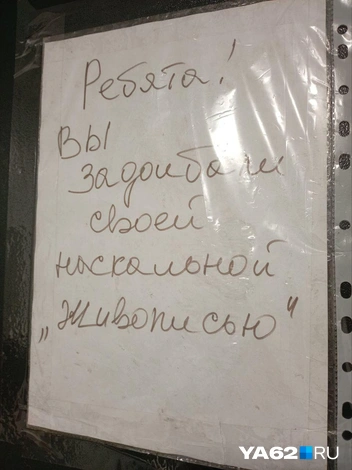 Ребята!
ВЫ
задолбали
своей
наскальной
„живописью"
YA62 RU